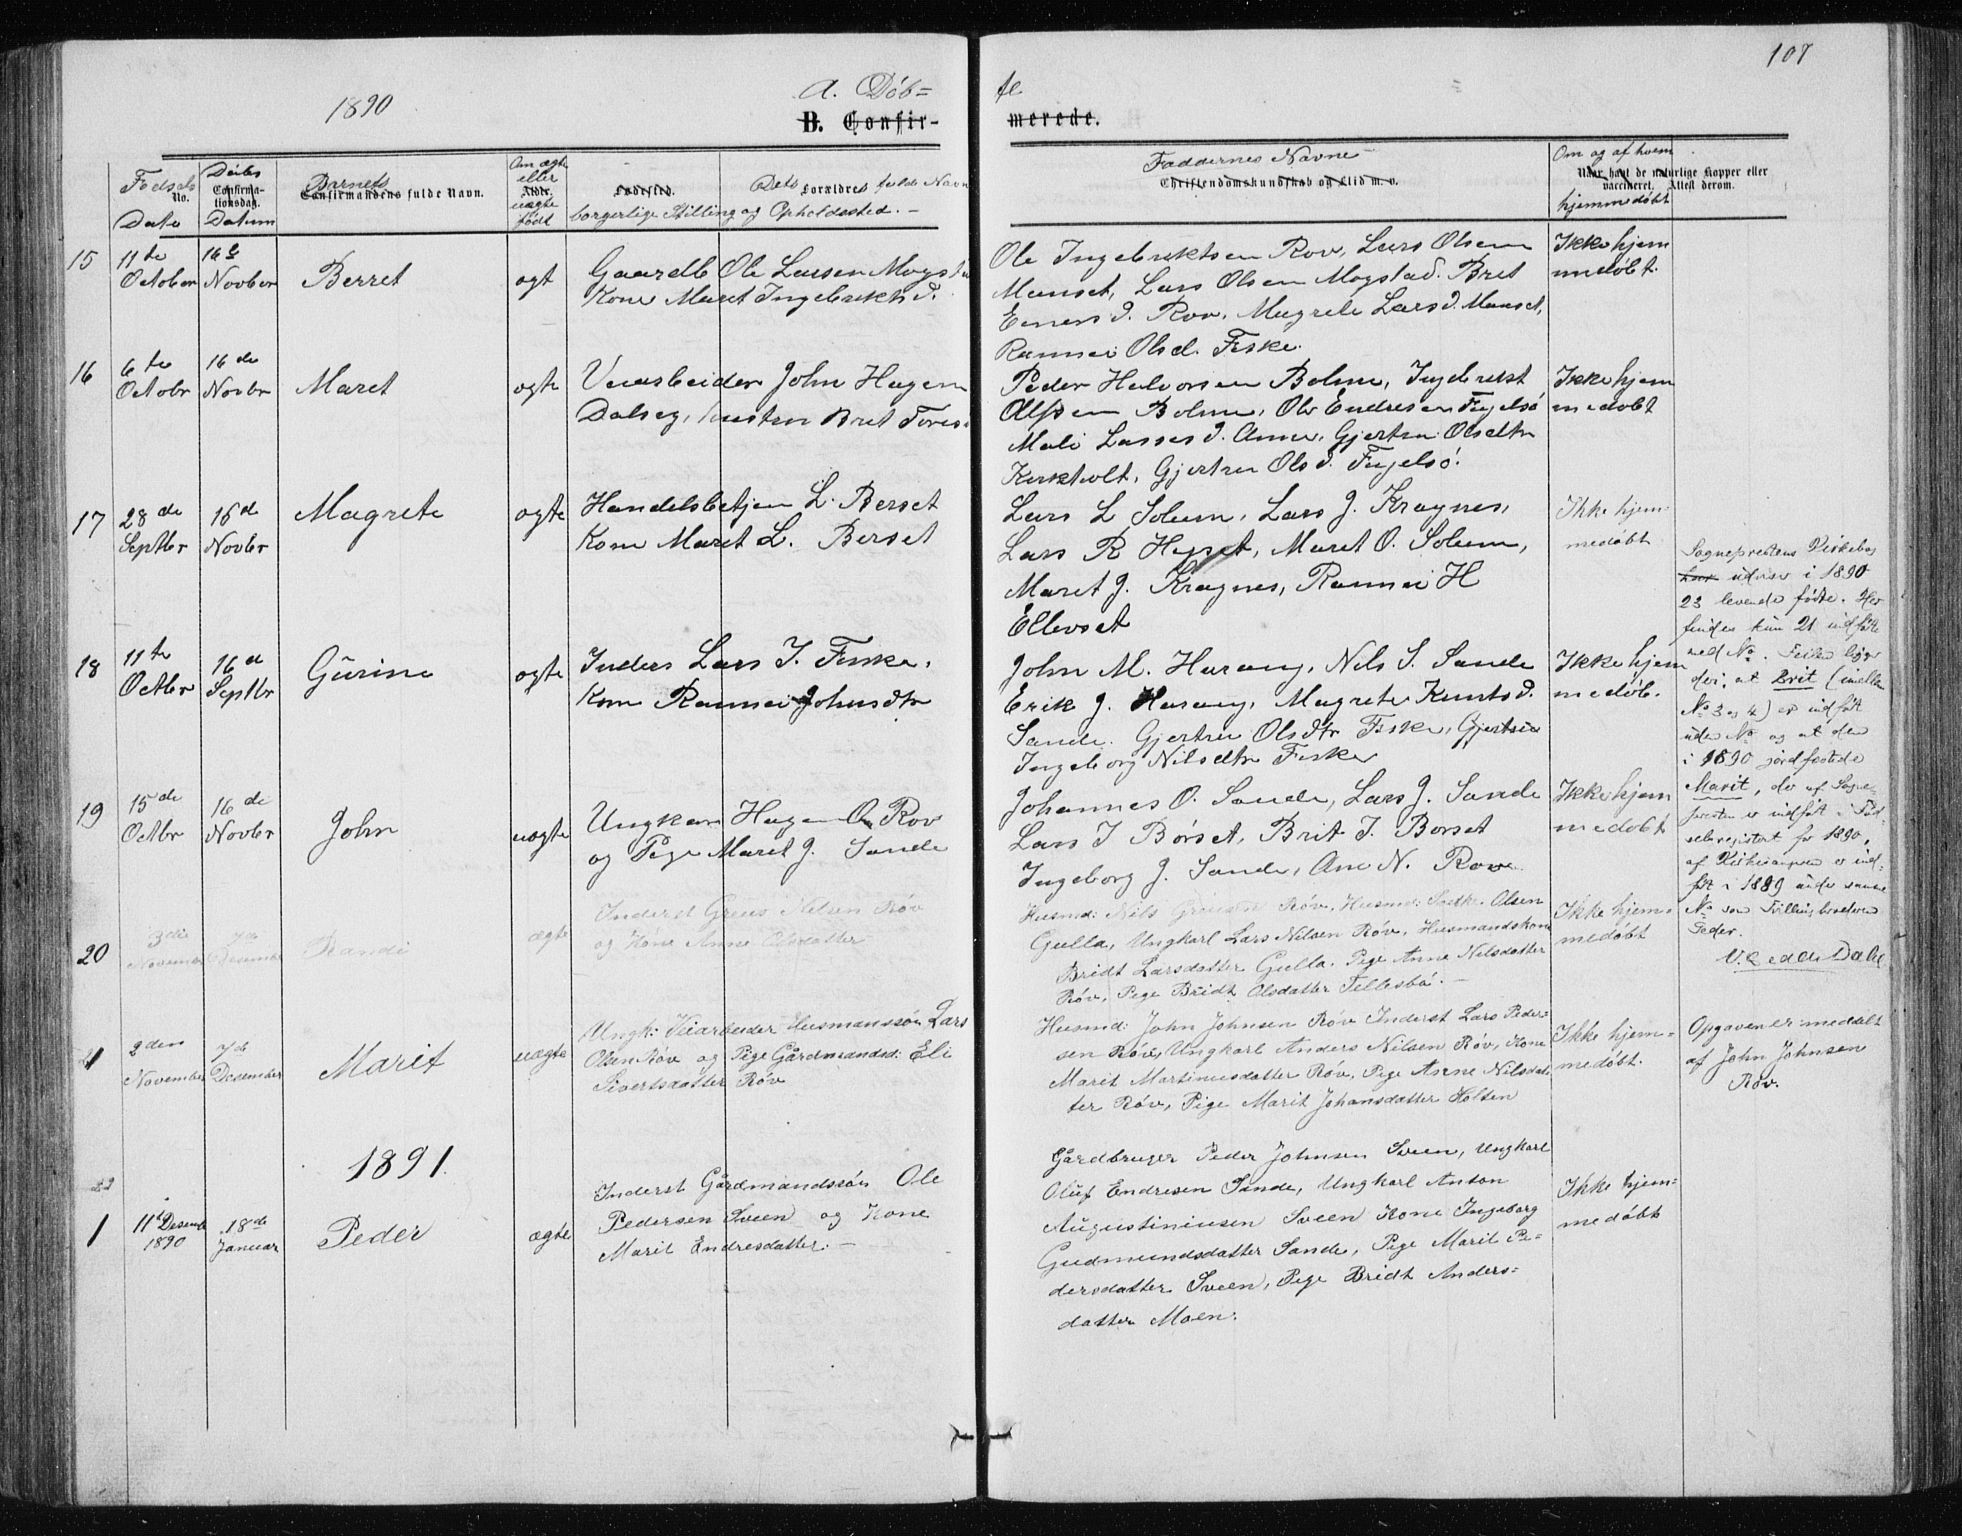 107
1890
A. Døb= te
B. Confir- merede.
Fødsels Dato
No.
Døbes Datum
Confirma-tionsdag.
Barnets
Confirmandens fulde Navn.
Om ægte eller uægte født
Alder.
Fødested.
Dets Forældres fulde Navn
borgerlige Stilling og Opholdssted. —
Faddernes Navne
Christendomskundskab og Flid m. v.
Om og af hvem hjemmedøbt
Naar havt de naturlige Kopper eller
vaccineret. Attest derom.
15
11te
October
16de
Novber
Berret
ægt
Gaardb Ole Larsen Mogstad
Kone Maret Ingebriktsd.
Ole Ingebriktsen Rov, Lars Olsen
Manset, Lars Olsen Mogstad. Bret
Einersd. Rov, Magrete Larsd. Manset,
Rannei Olsd. Fiske.
Ikke hjem
medøbt.
16
6te
Octobr
16de
Novbr
Maret
ægte
Veiarbeider John Hagen
Dalseg, Bret
Peder Halvorsen Bolme, Ingebrikt
Bolme, Ole Endresen Fugelsø
Mali Larsesd. Gjertru Olsdtr
Kirkholt, Gjertru Olsd. Fugelsø.
Ikke hjem
medøbt
17
28de
Septbr
16d
Novbr
Magrete
ægte
Handelsbetjen L. Berset
Kone Maret L. Berset
Lars L Solem, Lars J. Kragnes,
Lars R Hyset, Maret O. Solem,
Maret J. Kragnes, Rannei H
Ellevset
Ikke hjem=
medøbt
Sogneprestens Kirkebog
udviser i 1890
23 levende fødte. Her
findes kun 21 indførte
med No. Feilen ligger
deri, at Brit (mellem
No 3 og 4) er indført
uden No og at den
i 1890 jordfæstede
Marit, der af Sogne-
presten er indført i Fød
selsregistert for 1890,
af Kirkesangeren er ind-
ført i 1889 under samme
No som Tvillingbroderen
Peder.
18
11te
Octbr
16d
Septbr
Gurine
ægte
Inders Lars I. Fiske,
Kone Rannei Johnsdtr
John M. Harang, Nils S. Sande
Erik J. Harang, Magrete Knutsd.
Sande. Gjertru Olsdtr Fiske,
Ingeborg Nilsdtr Fiske
Ikke hjem
medøb.
19
15de
Octbr
16de
Novbr
John
uægte
Ungkar Hagen O. Rov
og Pige Maret J. Sande
Johannes O. Sande, Lars J. Sande
Lars I Børset, Brit I. Børset
Ingeborg J. Sande, Ane N. Rove
Ikke hjem
medøbt
20
3die
November
7de
Desember
Randi
ægte
Inderst Greus Nilsen Røv
og Kone Anne Olsdatter
Husmd: Nils Greusen Røv, Husmd: Olsen
Gulla, Ungkarl Lars Nilsen Røv, Husmandskone
Bridt Larsdatter Gulla. Pige Anne Nilsdatter
Røv, Pige Bridt Olsdatter Tellesbø. —
Ikke hjem=
medøbt
21
2den
November
7de
Desember
Marit
uægte
Ungk: Veiarbeider Husmanssøn Lars
Olsen Røv og Pige Gårdmandsd: Eli
Sivertsdatter Røv
Husmd: John Johnsen Røv Inderst Lars Peder=
sen Røv, Ungkarl Anders Nilsen Røv, Kone
Marit Martinusdatter Røv, Pige Anne Nilsdat
ter Røv, Pige Marit Johansdatter Holten
Ikke hjem=
medøbt.
Opgaven er meddelt
af John Johnsen
Røv.
1891.
22
1
11te Desemb
1890
18de
Januar
Peder
ægte
Inderst Gårdmandssøn Ole
Pedersen Sveen og Kone
Marit Endresdatter. —
Gårdbruger Peder Johnsen Sveen, Ungkarl
Oluf Endresen Sande, Ungkarl Anton
Augustiniusen Sveen Kone Ingeborg
Gudmundsdatter Sande, Pige Marit Pe=
dersdatter Sveen, Pige Bridt Anders=
datter Moen.
Ikke hjem=
medøbt